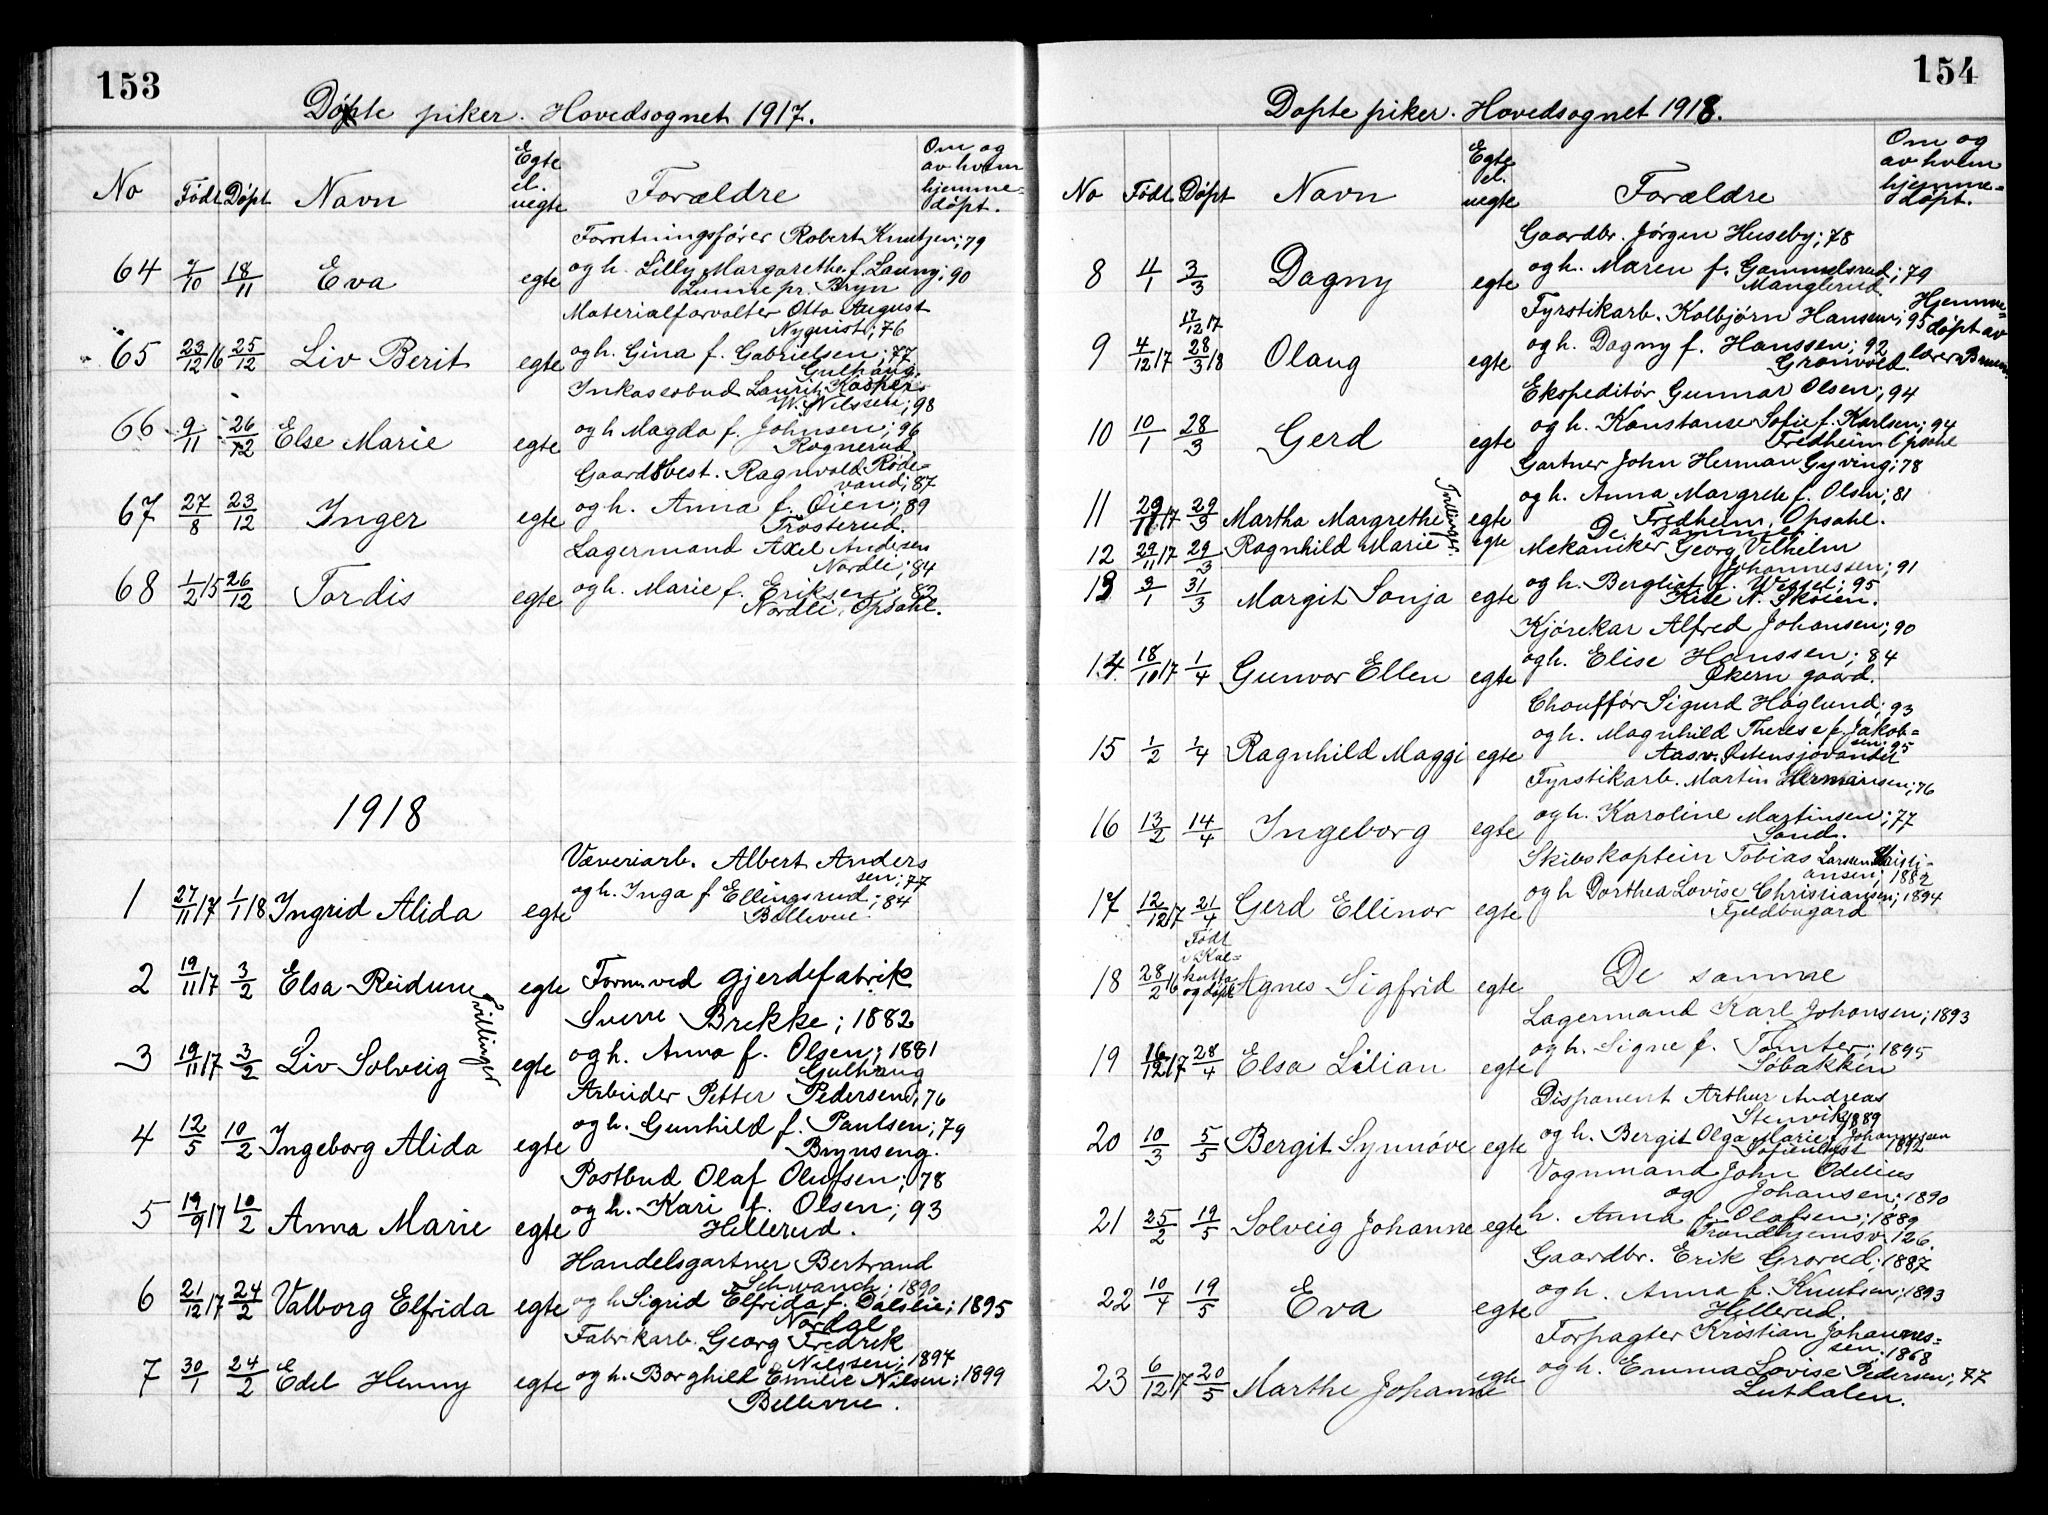 153
Døpte piker. Hovedsognet 1917.
No Født Døpt Navn Egte el. uegte Forældre Om og av hvem hjemme=døpt.
Forretningsfører Robert Knutzen; 79
64 7/10 18/11 Eva egte og h. Lilly Margarethe f. 90
pr. Bryn
Materialforvalter Otto August
Nyquist; 76
65 23/12 16 25/12 Liv Berit egte og h. Gina f. Gabrielsen; 77
Gulhaug.
Inkassobud Laurits Kasper
W. Nilssen; 98
66 9/11 26/12 Else Marie egte og h Magda f. Johnsen; 96
Rognerud.
Gaardsbest. Ragnvald Røde=
vand; 87
67 27/8 23/12 Inger egte og h. Anna f. Øien; 89
Trosterud.
Lagermand Axel Andersen
Nordli; 84
68 1/2 15 26/12 Tordis egte og h. Marie f. Eriksen; 82
Nordli, Opsahl.
1918
Væveriarb. Albert Anders
sen; 77
1 27/11 17 1/1 18 Ingrid Alida egte og h. Inga f Ellingsrud; 84
Bellevue.
2 19/11 17 3/2 Elsa Reidun egte Form. ved gjerdefabrik
Tvillinger
Sverre Brekke; 1882
3 19/11 17 3/2 Liv Solveig egte og h. Anna f. Olsen; 1881
Gulhaug
Arbeider Petter Pedersen; 76
4 12/5 10/2 Ingeborg Alida egte og h. Gunhild f. Paulsen; 79
Brynseng.
Postbud Olaf Olufsen; 78
5 19/9 17 10/2 Anna Marie egte og h. Kari f. Olsen; 93
Hellerud.
Handelsgartner Bertrand
Schwanch; 1890
6 21/12 17 24/2 Valborg Elfrida egte og h Sigrid Elfrida f. Dalslie; 1895
Nordal
Fabrikarb. Georg Fredrek
Nilssen; 1897
7 30/1 24/2 Edel Henny egte og h. Borghild Emilie Nilsen; 1899
Bellevue.
154
Døpte piker. Hovedsognet 1918.
No Født Døpt Navn Egte el. uegte Forældre Om og av hvem hjemme=døpt.
Gaardbr. Jørgen Huseby; 78
8 4/1 3/3 Dagny egte og h. Maren f. Gammelsrud; 79
Manglerud
17/12 17 Fyrstikarb. Kolbjørn Hansen; 95 Hjemme=døpt av
9 4/12 17 28/3 18 Olaug egte og h. Dagny f. Hanssen; 92 lærer
Grønvold.
Ekspeditør Gunnar Olsen; 94
10 10/1 28/3 Gerd egte og h. Konstanse Sofie f. Karlsen; 94
Fredheim Opsahl
Gartner John Herman Gyving; 78
11 29/11 17 29/3 Martha Margrethe egte og h. Anna Margrete f. Olsen; 81
Tvillinger.
Fredheim, Opsahl.
12 29/11 17 29/3 Ragnhild Marie egte De samme
Mekaniker Georg Vilhelm
Johannessen; 91
13 3/1 31/3 Margit Sonja egte og h. Bergliot f. 95
N. Skøien.
Kjørekar Alfred Johansen; 90
14 18/10 17 1/4 Gunvor Ellen egte og h. Elise Hanssen; 84
Økern gaard.
Chauffør Sigurd Høglund; 93
og h. Magnhild Therese f. Jakob=
sen; 95
15 1/2 1/4 Ragnhild Maggi egte Aas v. Østensjøvandet
Fyrstikarb. Martin Hermansen; 76
16 13/2 14/4 Ingeborg egte og h. Karoline Martinsen; 77
Sand.
Skibskaptein Tobias Larsen Kristi-
ansen; 1882
17 12/12 17 21/4 Gerd Ellinor egte og h Dorthea Lovise Christiansen; 1894
Fjeldbugard
18 28/2 16 Født i Kal=kutta og døpt Agnes Sigfrid egte De samme
Lagermand Karl Johansen; 1893
19 16/12 17 28/4 Elsa Lilian egte og h. Signe f. Tomter; 1895
Søbakken
Disponent Arthur Andreas
Stenvik; 1889
20 10/3 5/5 Bergit Synnøve egte og h. Bergit Olga Marie f Johannessen
Sofienlyst 1892
Vognmand John Odelius
og Johansen; 1890
21 25/2 19/5 Solveig Johanne egte h. Anna f. Olafsen; 1889
Trondhjemsv. 126.
Gaardbr. Erik Grorud; 1887
22 10/4 19/5 Eva egte og h. Anna f. Knutsen; 1893
Hellerud.
Forpagter Kristian Johannes=
sen. 1868
23 6/12 17 20/5 Marthe Johanne egte og h. Emma Lovise Pedersen; 77
Lutdalen.